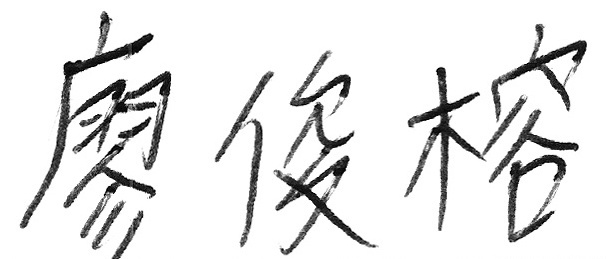 廖俊榕